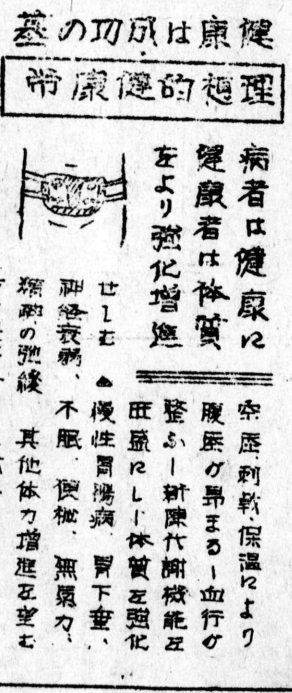 健康は成功の基
理想的健康帯
病者は健康に
健康者は体質
をより強化増進
空圧、刺戟、保温により
腹圧が昂まる—血行が
整ふ—新陳代謝機能を
旺盛にし—体質を強化
せしむ ▲慢性胃腸病、胃下垂、
神経衰弱、不眠、便秘、無気力、
精神の弛緩 其他体力増進を望む